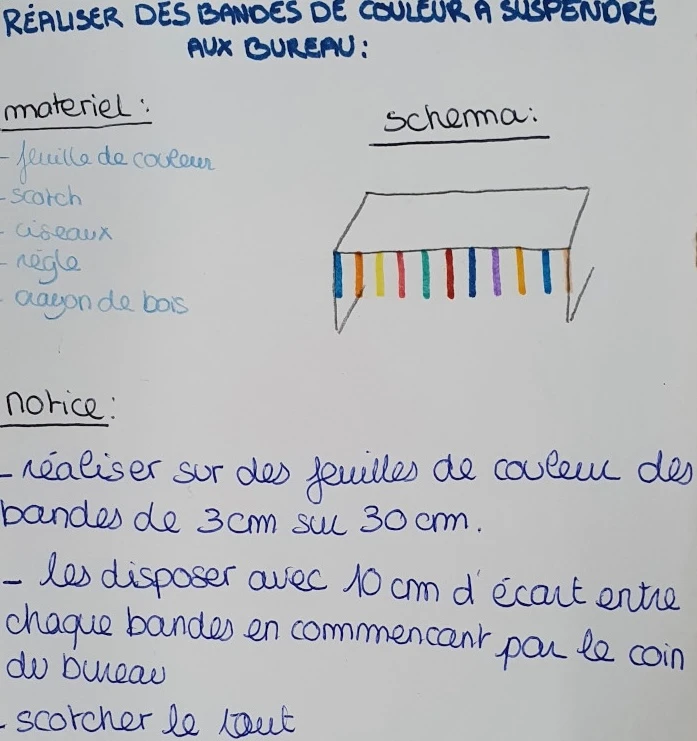 RÉALISER DES BANDES DE COULEUR A SUSPENDRE
AUX BUREAU:
materiel:
schema:
- feuille de couleur
- scotch
- ciseaux
- règle
- crayon de bois
notice:
- réaliser sur des feuilles de couleur des
bandes de 3cm sur 30 cm.
- les disposer avec 10 cm d'écart entre
chaque bandes en commmencant par le coin
du bureau
- scotcher le tout